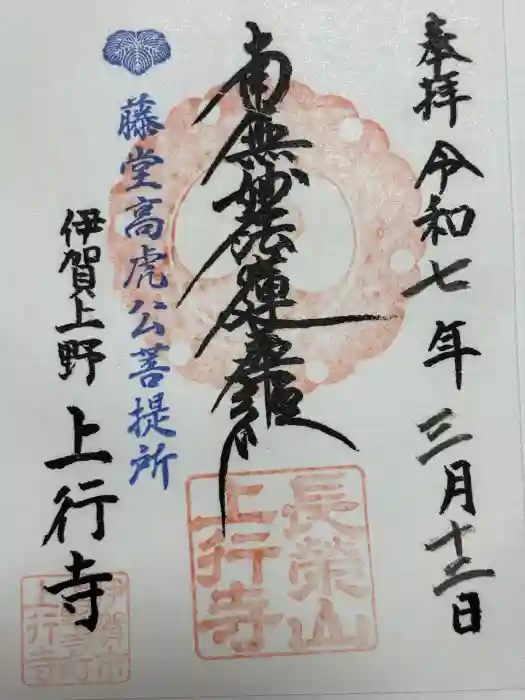 奉拝 令和七年 三月十二日
南無妙法蓮華経
藤堂高虎公菩提所
伊賀上野 上行寺
長栄山
上行寺
伊賀市
上行寺